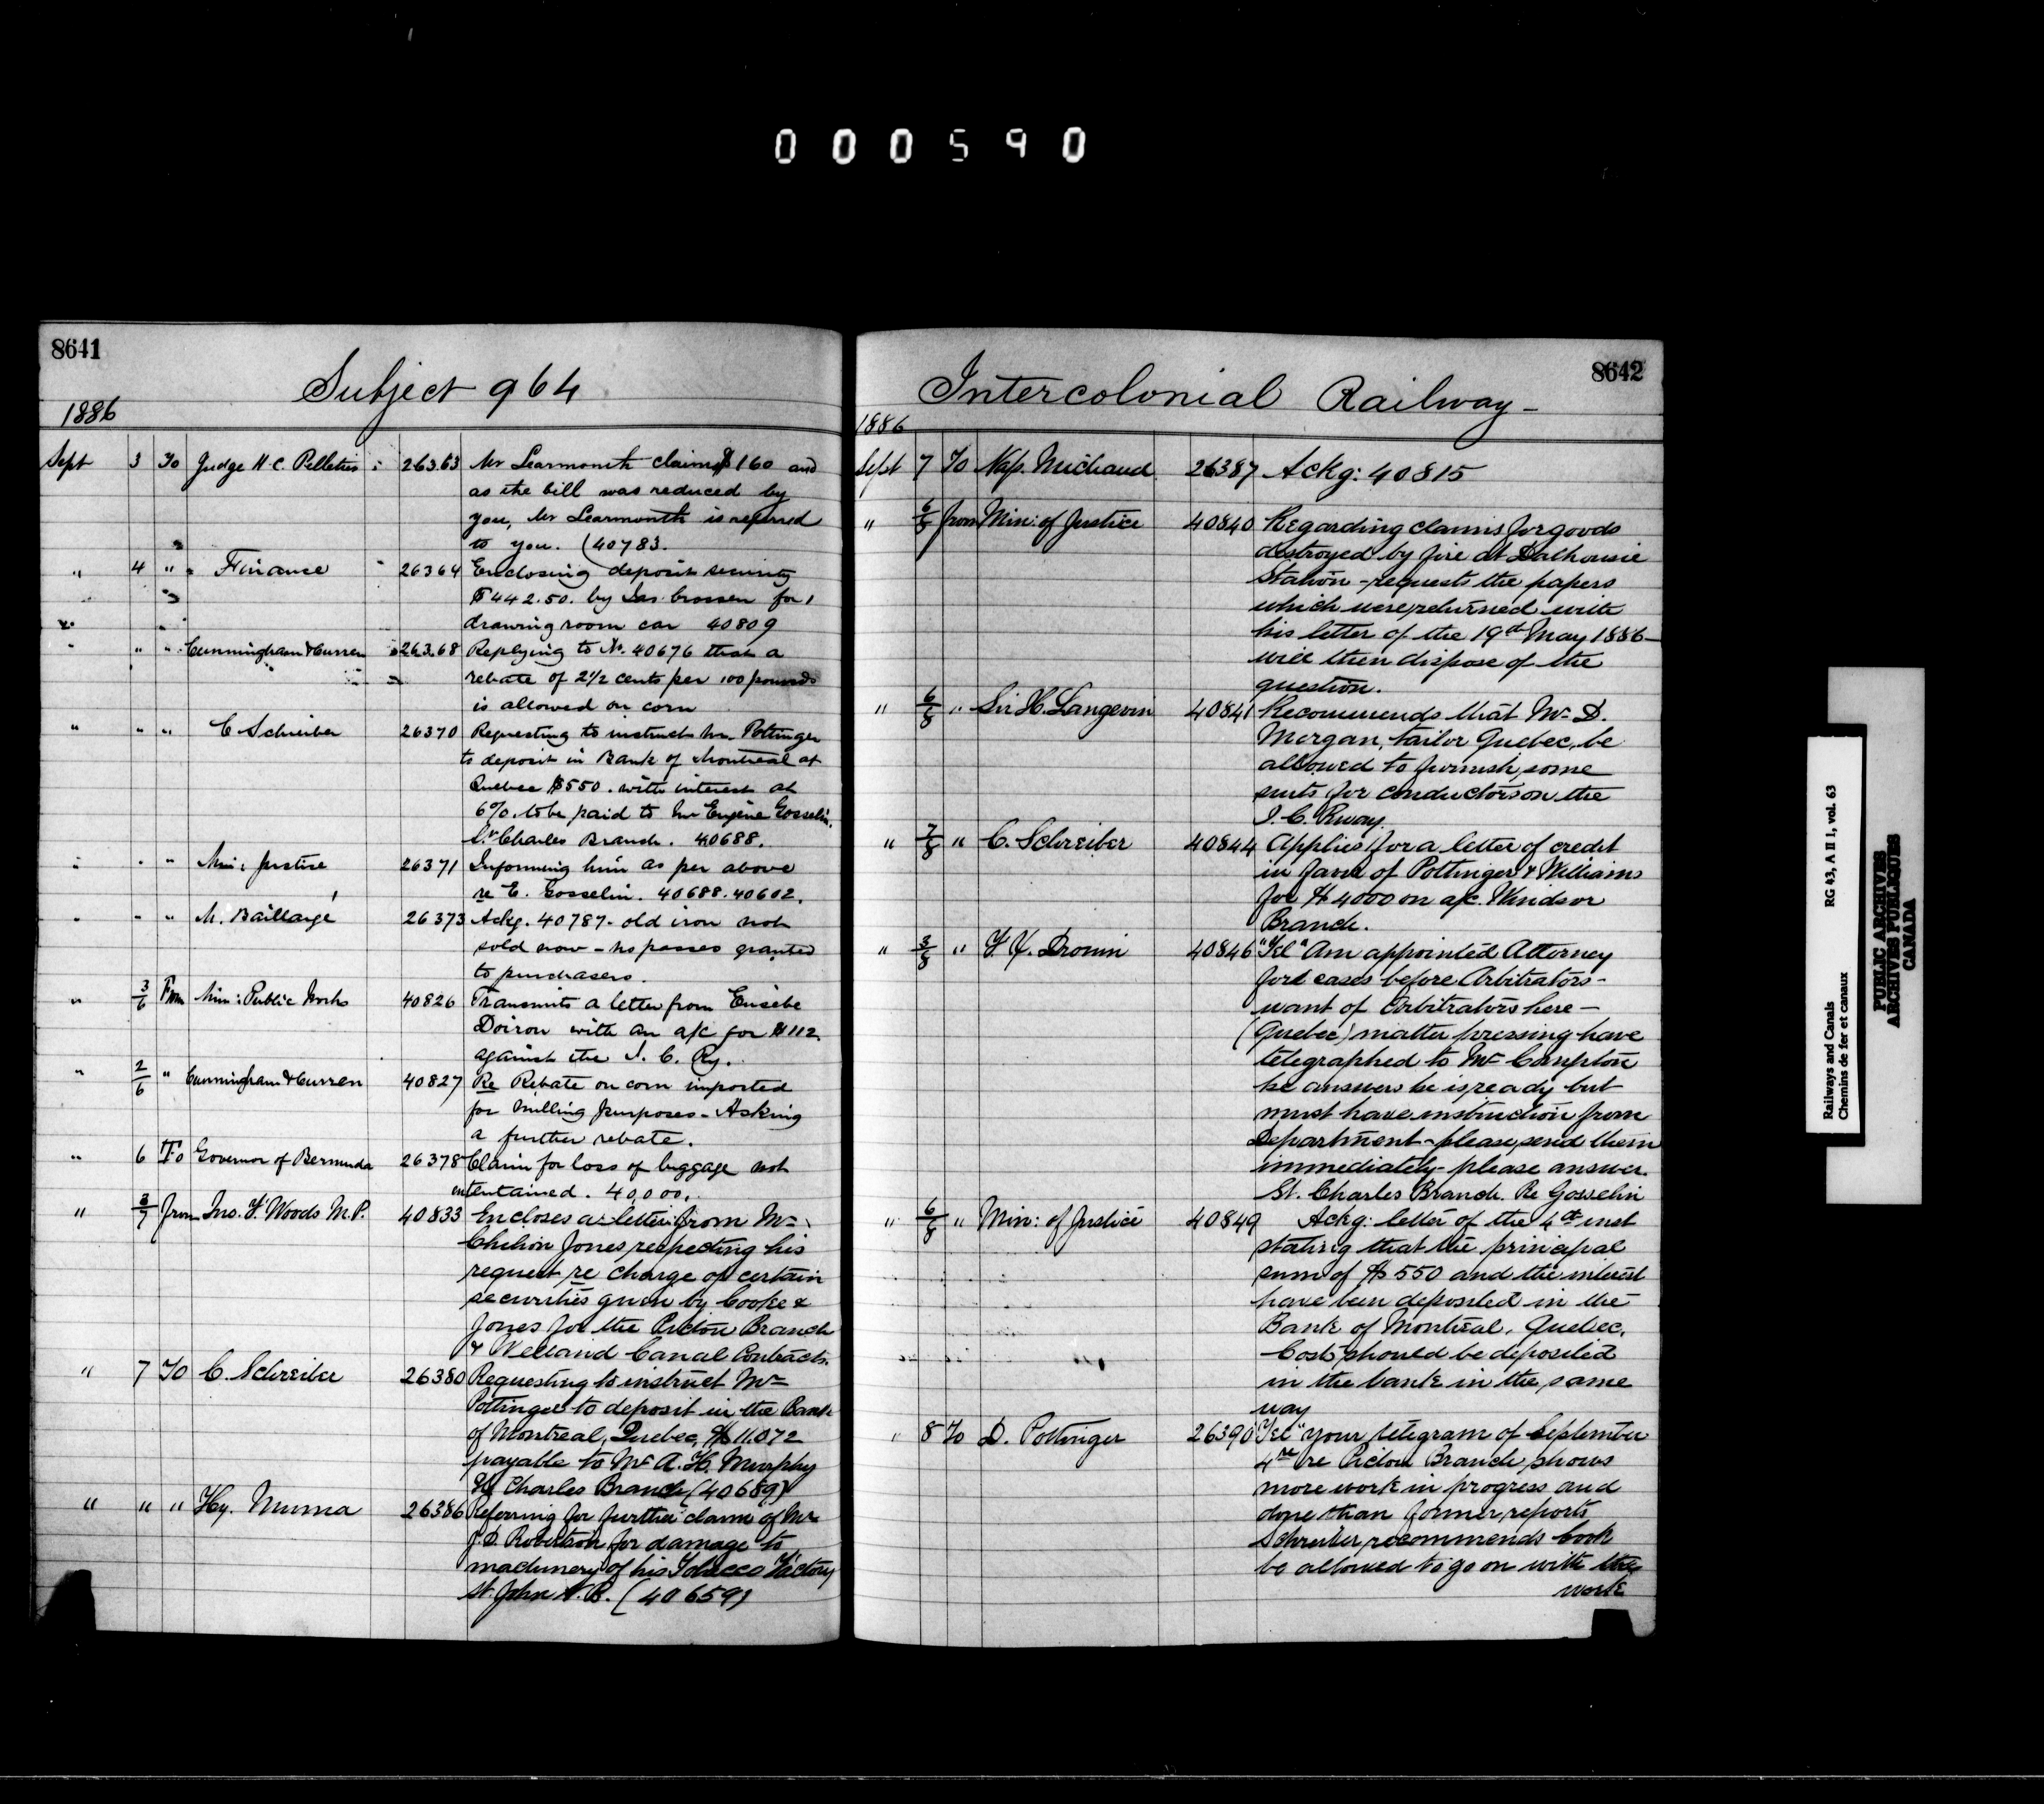 000590
8641
Subject 964
1886
Sept 3 To Judge H. C. Pelletier 26363 Mr Learmonth claims $160 and
as the bill was reduced by
you, Mr Learmonth is referred
to you. (40783.
" 4 " Finance 26364 Enclosing deposit security
$442.50. by Jas. Crossen for 1
drawing room car 40809
" " " Cunningham & Curren 26368 Replying to No. 40676 that a
rebate of 2½ cents per 100 pounds
is allowed on corn
" " " C Schreiber 26370 Requesting to instruct Mr Pottinger
to deposit in Bank of Montreal at
Quebec $550. with interest at
6%. to be paid to Mr Eugène Gosselin,
St Charles Branch. 40688.
" " " Min: Justice 26371 Informing him as per above
re E. Gosselin. 40688. 40602.
" " " M. Baillargé 26373 Ackg. 40787 - old iron not
sold now - no passes granted
to purchasers.
" 3/6 From Min: Public Works 40826 Transmits a letter from Eusèbe
Doiron with an a/c for $112
against the I. C. Ry.
" 2/6 " Cunningham & Curren 40827 Re Rebate on corn imported
for milling purposes - Asking
a further rebate.
" 6 To Governor of Bermuda 26378 Claim for loss of luggage not
entertained. 40,000.
" 3/7 from Jno. F. Woods M.P. 40833 Encloses a letter from Mr
Chilion Jones respecting his
request re charge of certain
securities given by Cooke &
Jones for the Pictou Branch
& Welland Canal Contracts.
" 7 To C. Schreiber 26380 Requesting to instruct Mr
Pottinger to deposit in the Bank
of Montreal, Quebec, $11.072
payable to Mr A. H. Murphy
St Charles Branch (40689)
" " " Hy. Mumma 26386 Referring for further claim of Mr
J. D. Robertson for damage to
machinery of his Tobacco Factory
St. John N. B. (40659)
8642
Intercolonial Railway -
1886
Sept 7 To Nap. Michaud 26387 Ackg: 40815
" 6/8 from Min: of Justice 40840 Regarding claims for goods
destroyed by fire at Dalhousie
Station - requests the papers
which were returned with
his letter of the 19th May 1886 -
will then dispose of the
question.
" 6/8 " Sir H. Langevin 40841 Recommends that Mr D.
Morgan, tailor Quebec, be
allowed to furnish some
suits for conductors on the
I. C. Rway.
" 7/8 " C. Schreiber 40844 Applies for a letter of credit
in favor of Pottinger & Williams
for $4000 on a/c. Windsor
Branch.
" 3/8 " F. X. Drouin 40846 "Tel" Am appointed Attorney
for cases before Arbitrators -
want of Arbitrators here -
(Quebec) matter pressing have
telegraphed to Mr Compton
he answers he is ready but
must have instruction from
Department - please send them
immediately - please answer.
St. Charles Branch. Re Gosselin
" 6/8 " Min: of Justice 40849 Ackg: letter of the 4th inst
stating that the principal
sum of $550 and the interest
have been deposited in the
Bank of Montreal, Quebec,
Costs should be deposited
in the bank in the same
way
" 8 To D. Pottinger 26390 "Tel" your telegram of September
4th re Pictou Branch shows
more work in progress and
done than former reports
Schreiber recommends Cook
be allowed to go on with the
work
Railways and Canals RG 43, A II 1, vol. 63
Chemins de fer et canaux
PUBLIC ARCHIVES
ARCHIVES PUBLIQUES
CANADA